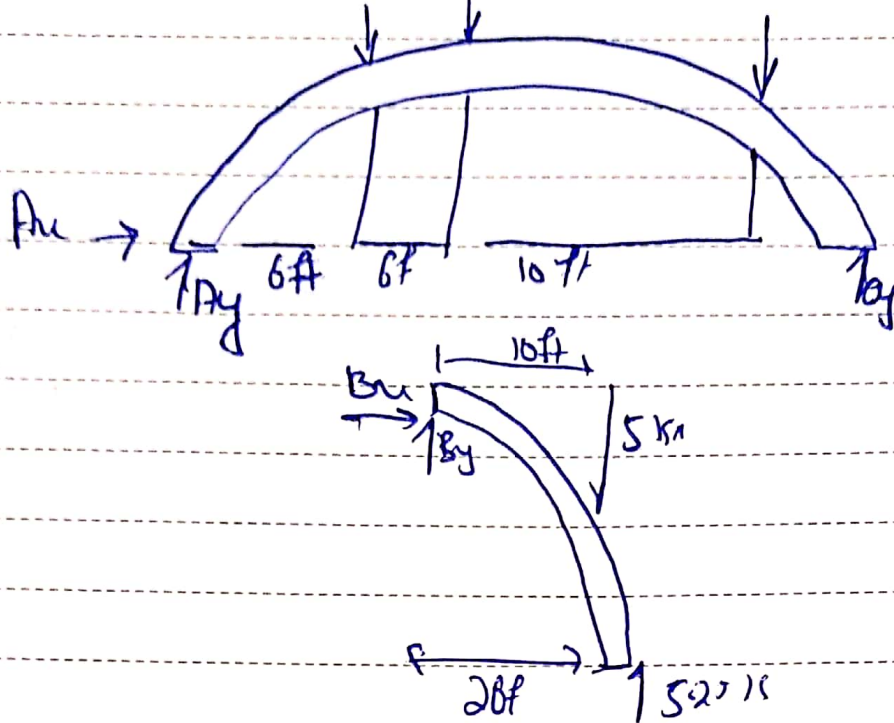 Ax →
Ay
6ft
6f
10 ft
Cy
10ft
Bx
By
5 kn
20f
5.25 k